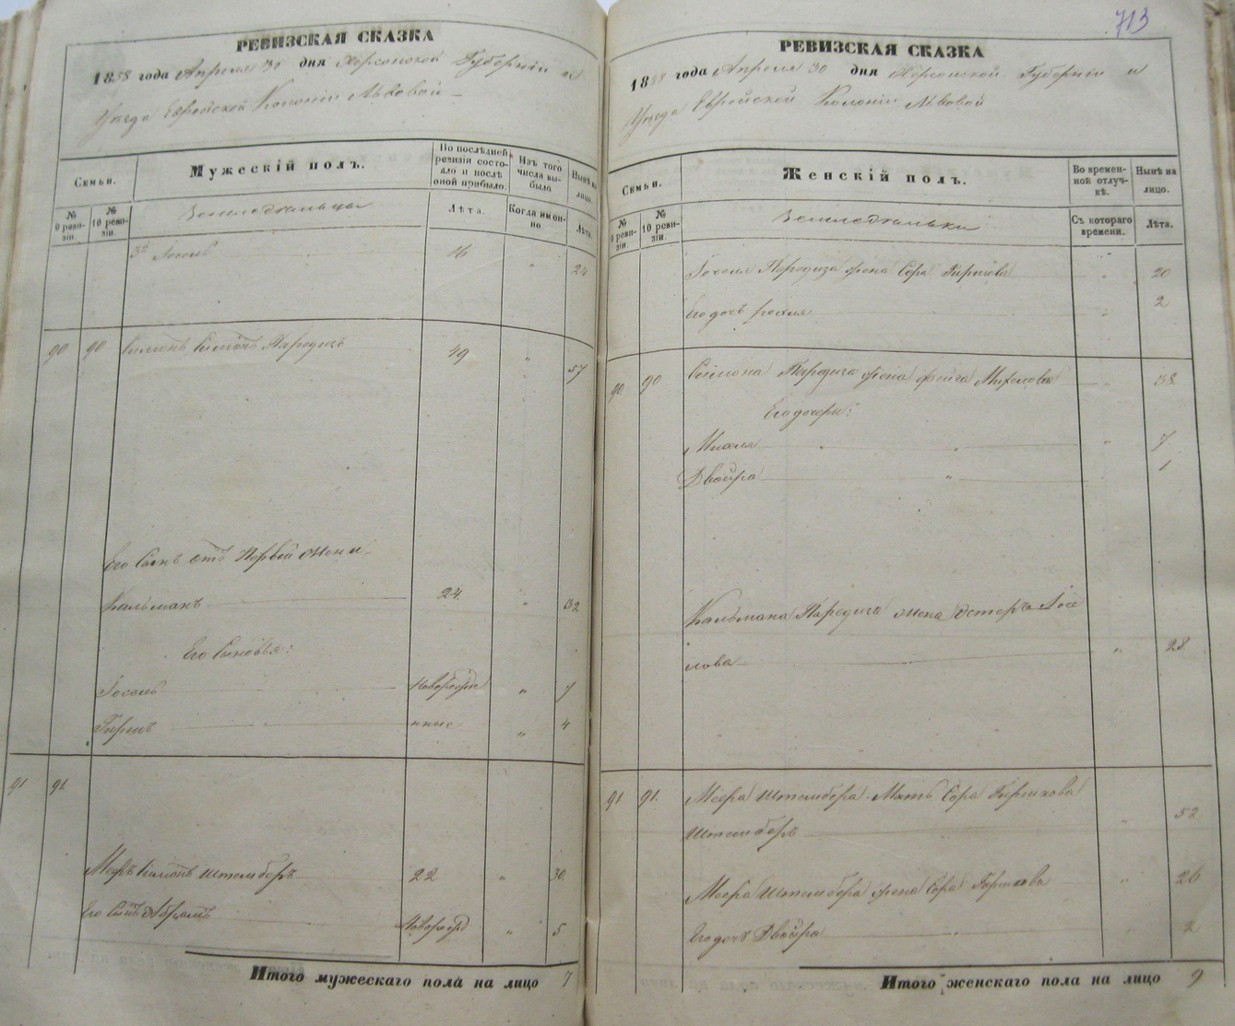 РЕВИЗСКАЯ СКАЗКА
1858 года Апреля 30 дня Херсонской Губернии и
Уезда Еврейской Колоніи Львовой
Семьи.
Мужескій полъ.
По последней ревизіи состояло и послѣ оной прибыло.
Изъ того числа выбыло.
Нынѣ на лицо.
№ 9 ревизіи.
№ 10 ревизіи.
Земледѣльцы
Лѣта.
Когда именно
Лѣта.
3й Іосель 16 " 24
90 90 Симонъ Народичъ 49 " 57
Его Сынъ отъ Первой жены
Кальманъ 24 " 32
Его Сыновья:
Іосель Новорожде " 7
Гиршъ нные " 4
91 91
Мееръ Штемберъ 22 " 30
Его Сынъ Абрамъ Новорожд " 5
Итого мужескаго пола на лицо 7
713
РЕВИЗСКАЯ СКАЗКА
1858 года Апреля 30 дня Херсонской Губерніи и
Уезда Еврейской Колоніи Львовой
Семьи.
Женскій полъ.
Во временной отлучкѣ.
Нынѣ на лицо.
№ 9 ревизіи.
№ 10 ревизіи.
Земледѣльки
Съ котораго времени.
Лѣта.
Іоселя Народича жена Сора Гиршова " 20
Его дочь Рохля " 2
90 90 Симона Народича жена Фейга Михелова 38
Его дочери:
Михля " 7
Двойра " 1
Кальмана Народича жена Эстеръ Іосе
лова " 28
91 91 Меера Штембера Мать Сора Гиршкова
Штемберъ " 52
Меера Штембера жена Сора Гершкова " 26
Его дочь Двойра " 2
Итого женскаго пола на лицо 9